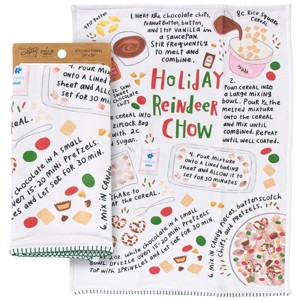 KITCHEN TOWEL
4. POUR MIXTURE
ONTO A LINED
SHEET AND ALLOW
SET FOR 30 MIN
CEREAL
CHOCOLATE IN A SMALL
15-20 MINI PRETZELS.
AND LET SET FOR 30 MIN.
6. MIX IN CANDIES
1. HEAT THE CHOCOLATE CHIPS,
PEANUT BUTTER, BUTTER,
AND STIR VANILLA IN
A SAUCEPAN.
STIR FREQUENTLY
TO MELT AND
COMBINE.
8C. RICE SQUARE
CEREAL
HOLIDAY
REINDEER
CHOW
2.
POUR CEREAL INTO
A LARGE MIXING
BOWL. POUR 1/2 THE
MELTED MIXTURE
ONTO THE CEREAL
AND MIX UNTIL
COMBINED. REPEAT
UNTIL WELL COATED.
CEREAL INTO
A ZIPLOCK
WITH 2C.
SUGAR.
SHAKE TO
COAT THE CEREAL.
4. POUR MIXTURE
ONTO A LINED COOKIE
SHEET AND ALLOW TO
SET FOR 30 MINUTES
WHITE CHOCOLATE IN A SMALL
BOWL. DRIZZLE OVER 15-20 MINI PRETZELS.
TOP WITH SPRINKLES AND LET SET FOR 30 MIN.
6. MIX IN CANDIES, BUTTERSCOTCH
CHIPS, AND PRETZELS.